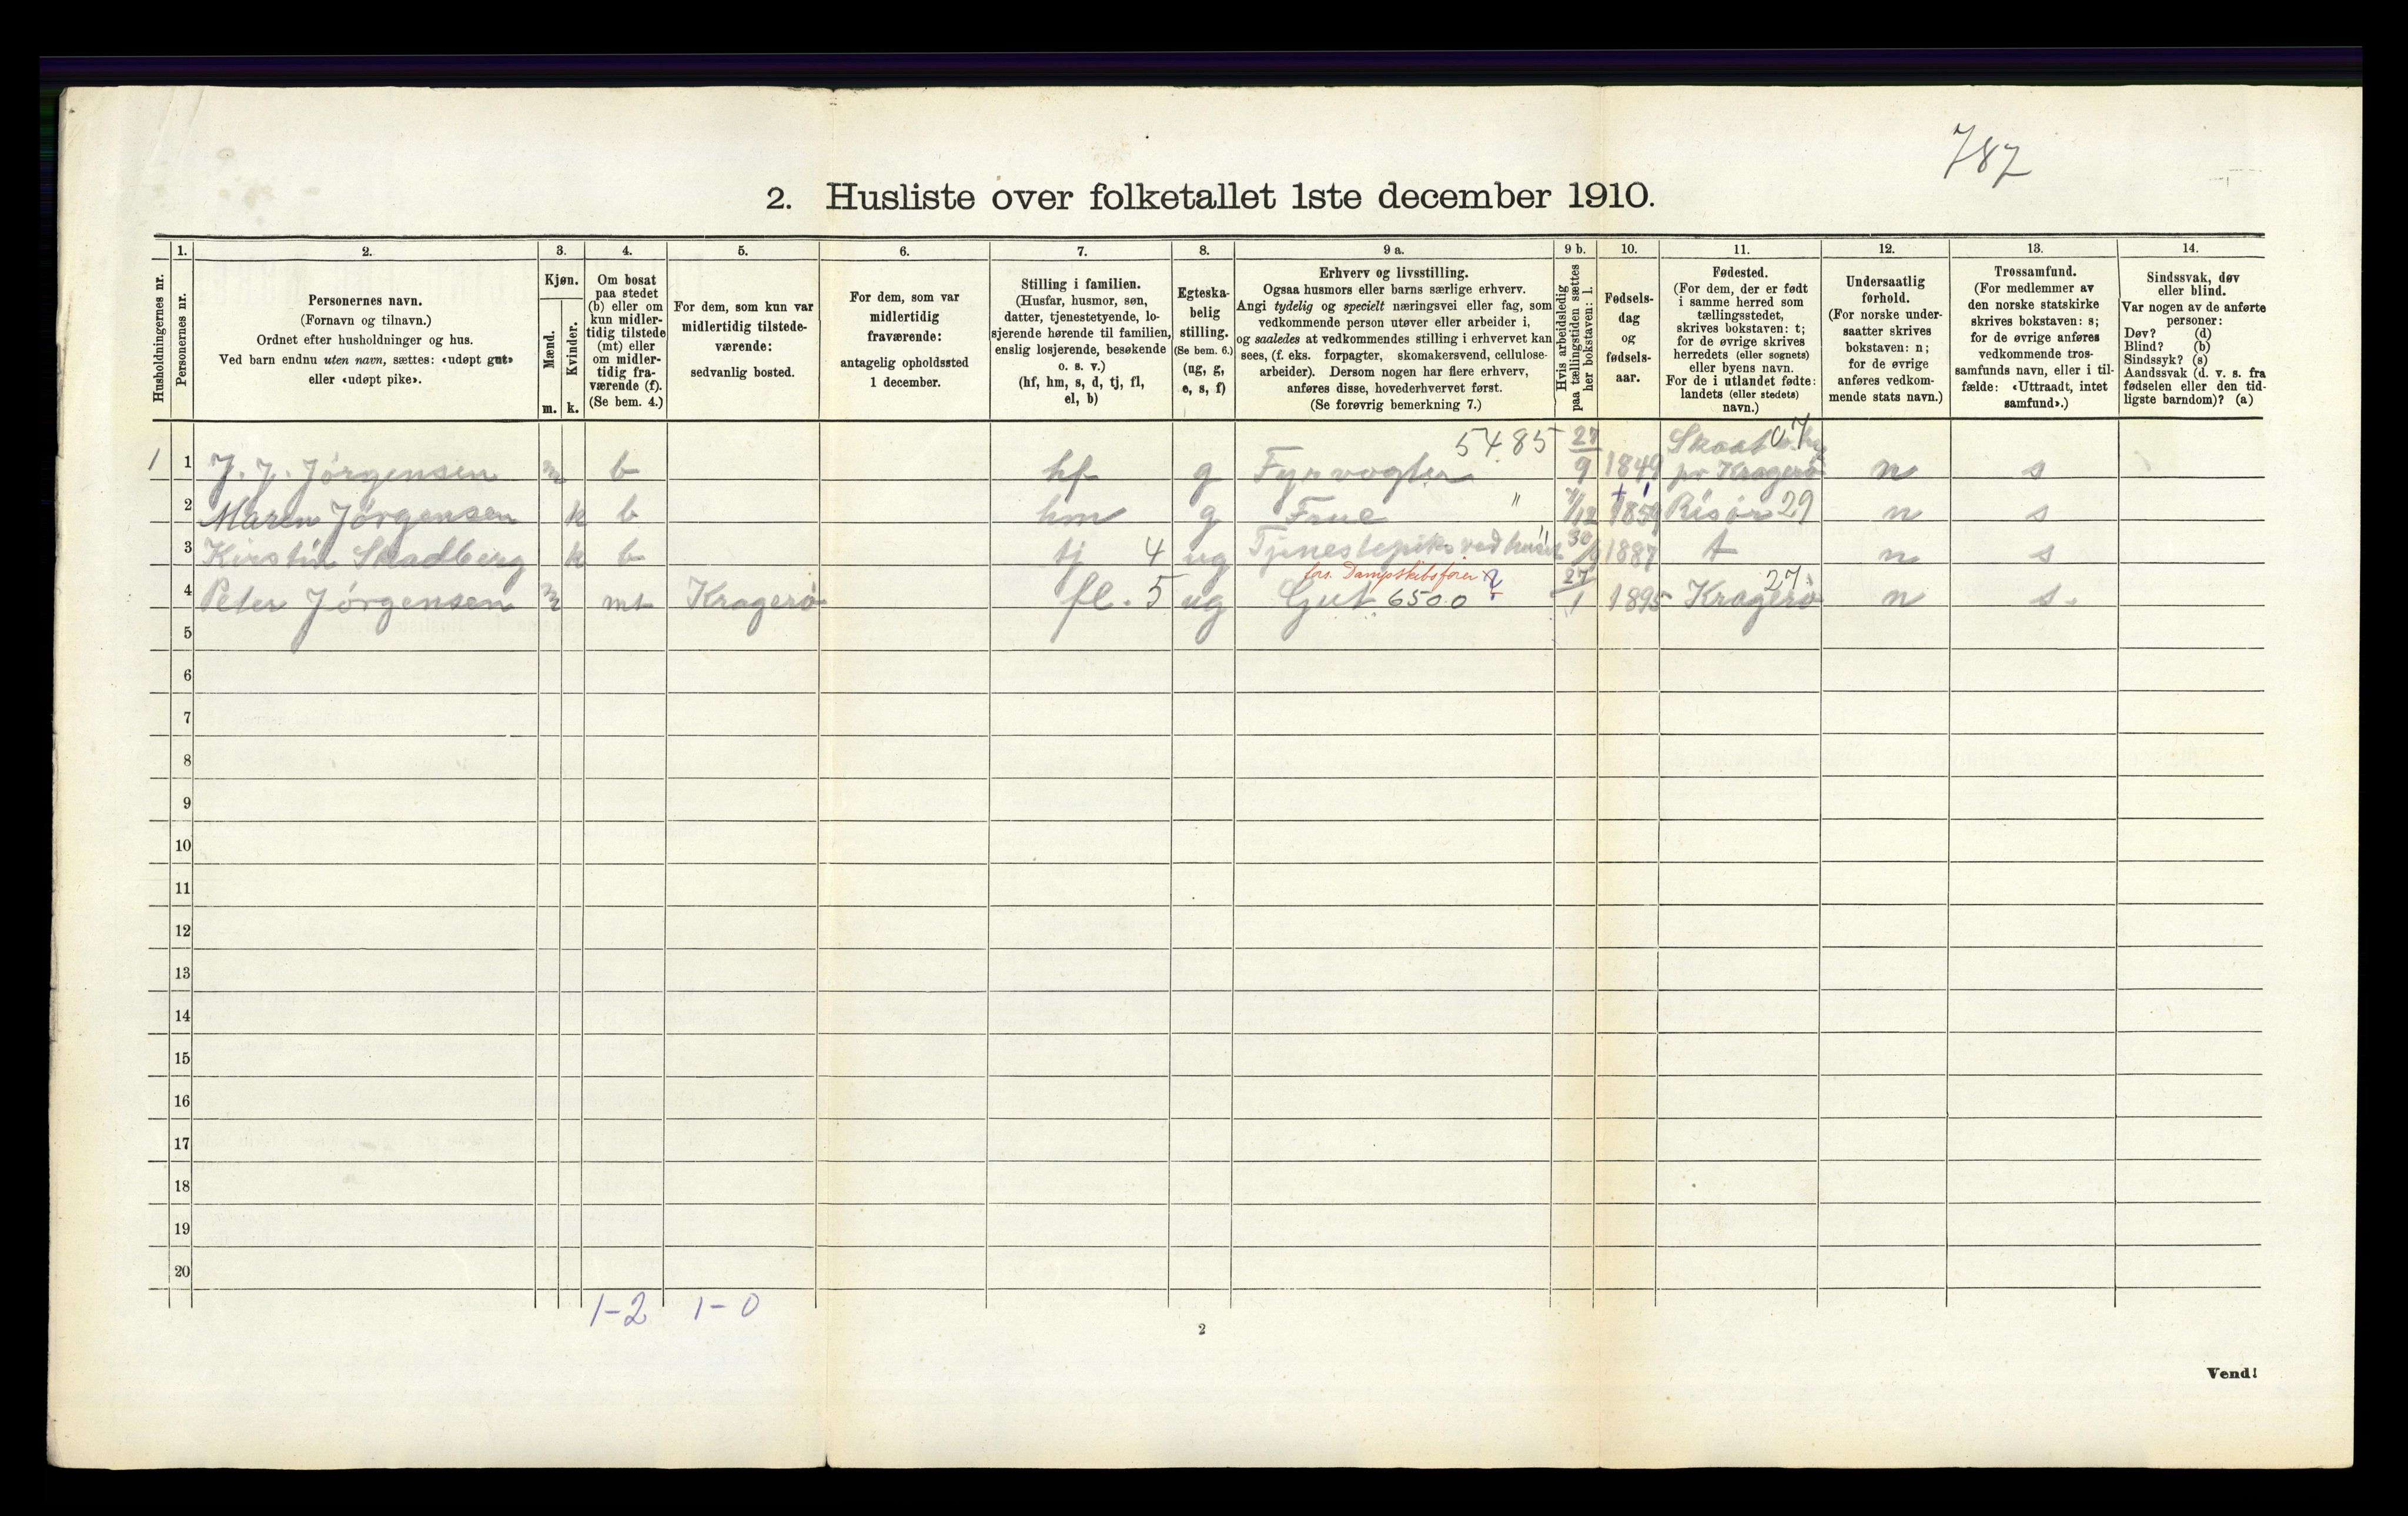 787
2. Husliste over folketallet 1ste december 1910.
Husholdningernes nr.
1.
Personernes nr.
2.
Personernes navn.
(Fornavn og tilnavn.)
Ordnet efter husholdninger og hus.
Ved barn endnu uten navn, sættes: «udøpt gut»
eller «udøpt pike».
3.
Kjøn.
Mænd.
Kvinder.
m. k.
4.
Om bosat
paa stedet
(b) eller om
kun midler-
tidig tilstede
(mt) eller
om midler-
tidig fra-
værende (f).
(Se bem. 4.)
5.
For dem, som kun var
midlertidig tilstede-
værende:
sedvanlig bosted.
6.
For dem, som var
midlertidig
fraværende:
antagelig opholdssted
1 december.
7.
Stilling i familien.
(Husfar, husmor, søn,
datter, tjenestetyende, lo-
sjerende hørende til familien,
enslig losjerende, besøkende
o. s. v.)
(hf, hm, s, d, tj, fl,
el, b)
8.
Egteska-
belig
stilling.
(Se bem. 6.)
(ug, g,
e, s, f)
9 a.
Erhverv og livsstilling.
Ogsaa husmors eller barns særlige erhverv.
Angi tydelig og specielt næringsvei eller fag, som
vedkommende person utøver eller arbeider i,
og saaledes at vedkommendes stilling i erhvervet kan
sees, (f. eks. forpagter, skomakersvend, cellulose-
arbeider). Dersom nogen har flere erhverv,
anføres disse, hovederhvervet først.
(Se forøvrig bemerkning 7.)
9 b.
Hvis arbeidsledig
paa tællingstiden sættes
her bokstaven: l.
10.
Fødsels-
dag
og
fødsels-
aar.
11.
Fødested.
(For dem, der er født
i samme herred som
tællingsstedet,
skrives bokstaven: t;
for de øvrige skrives
herredets (eller sognets)
eller byens navn.
For de i utlandet fødte:
landets (eller stedets)
navn.)
12.
Undersaatlig
forhold.
(For norske under-
saatter skrives
bokstaven: n;
for de øvrige
anføres vedkom-
mende stats navn.)
13.
Trossamfund.
(For medlemmer av
den norske statskirke
skrives bokstaven: s;
for de øvrige anføres
vedkommende tros-
samfunds navn, eller i til-
fælde: «Uttraadt, intet
samfund».)
14.
Sindssvak, døv
eller blind.
Var nogen av de anførte
personer:
Døv? (d)
Blind? (b)
Sindssyk? (s)
Aandssvak (d. v. s. fra
fødselen eller den tid-
ligste barndom)? (a)
5485 07
1 1 J. J. Jørgensen m b hf g Fyrvogter 27/9 1849 pr Kragerø n s
2 Maren Jørgensen k b hm g Frue " /12 Risør 29 n s
3 Kirstin Skadberg k b tj 4 ug Tjenestepike ved huset 30/9 1887 t n s
fors. Dampskibsfører 27
4 Peter Jørgensen m mt Kragerø fl. 5 ug Gut 6500 27/1 1895 Kragerø n s.
5
6
7
8
9
10
11
12
13
14
15
16
17
18
19
20
1-2 1-0
2
Vend!